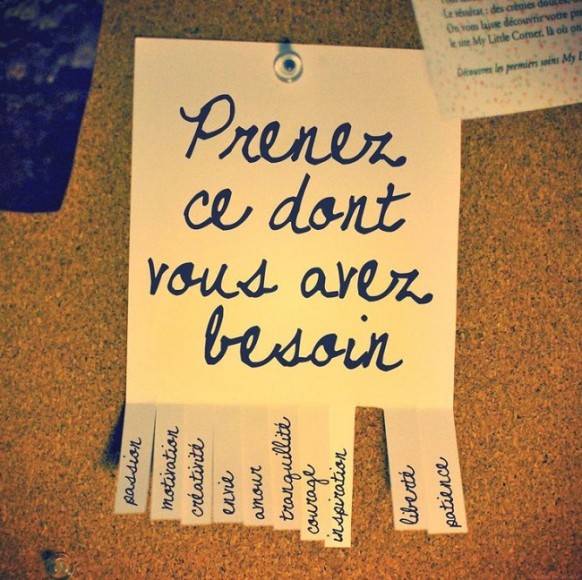 Le résultat : des crèmes douces,
On vous laisse découvrir votre
le site My Little Corner. Là où
Découvrez les premiers soins My
Prenez
ce dont
vous avez
besoin
passion
motivation
créativité
envie
amour
tranquillité
courage
inspiration
liberté
patience